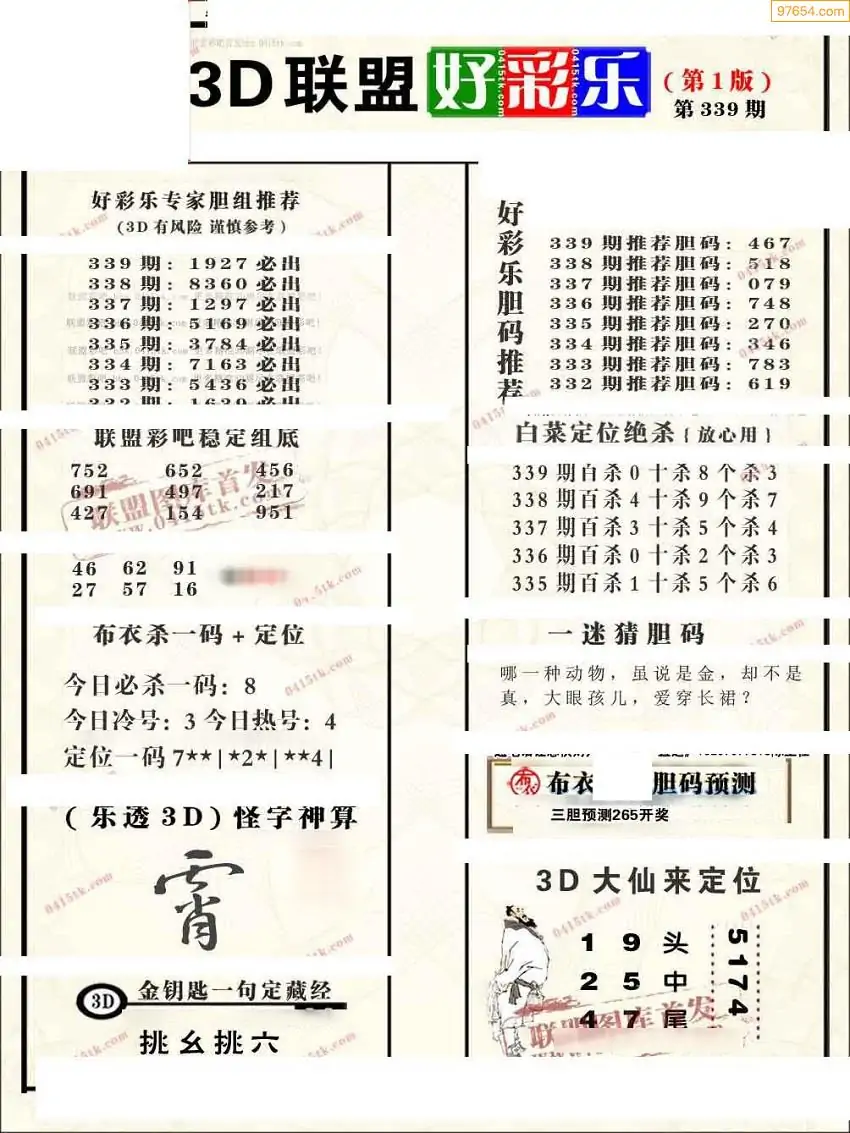 97654.com
3D联盟好彩乐(第1版)
第339期
好彩乐专家胆组推荐
(3D有风险 谨慎参考)
339期: 1927必出
338期: 8360必出
337期: 1297必出
336期: 5169必出
335期: 3784必出
334期: 7163必出
333期: 5436必出
联盟彩吧稳定组底
752 652 456
691 497 217
427 154 951
46 62 91
27 57 16
布衣杀一码+定位
今日必杀一码: 8
今日冷号: 3 今日热号: 4
定位一码 7**|*2*|**4|
(乐透3D)怪字神算
霄
3D 金钥匙一句定藏经
挑幺挑六
好彩乐胆码推荐
339期推荐胆码: 467
338期推荐胆码: 518
337期推荐胆码: 079
336期推荐胆码: 748
335期推荐胆码: 270
334期推荐胆码: 346
333期推荐胆码: 783
332期推荐胆码: 619
白菜定位绝杀{放心用}
339期白杀0十杀8个杀3
338期百杀4十杀9个杀7
337期百杀3十杀5个杀4
336期百杀0十杀2个杀3
335期百杀1十杀5个杀6
一迷猜胆码
哪一种动物，虽说是金，却不是
真，大眼孩儿，爱穿长裙？
布衣 胆码预测
三胆预测265开奖
3D大仙来定位
1 9 头
2 5 中
4 7 尾
5174
联盟图库首发
0415tk.com